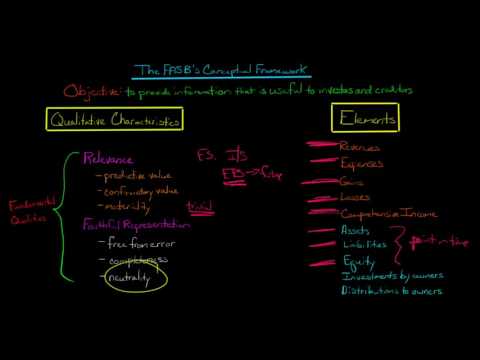 The FASB's Conceptual Framework
Objective: to provide information that is useful to investors and creditors
Qualitative Characteristics
Fundamental
Qualities
Relevance
- predictive value
- confirmatory value
- materiality
trivial
Faithful Representation
- free from error
- completeness
- neutrality
FS: I/S
EPS →
Elements
Revenues
Expenses
Gains
Losses
Comprehensive Income
Assets
Liabilities
Equity
Investments by owners
Distributions to owners
point in time